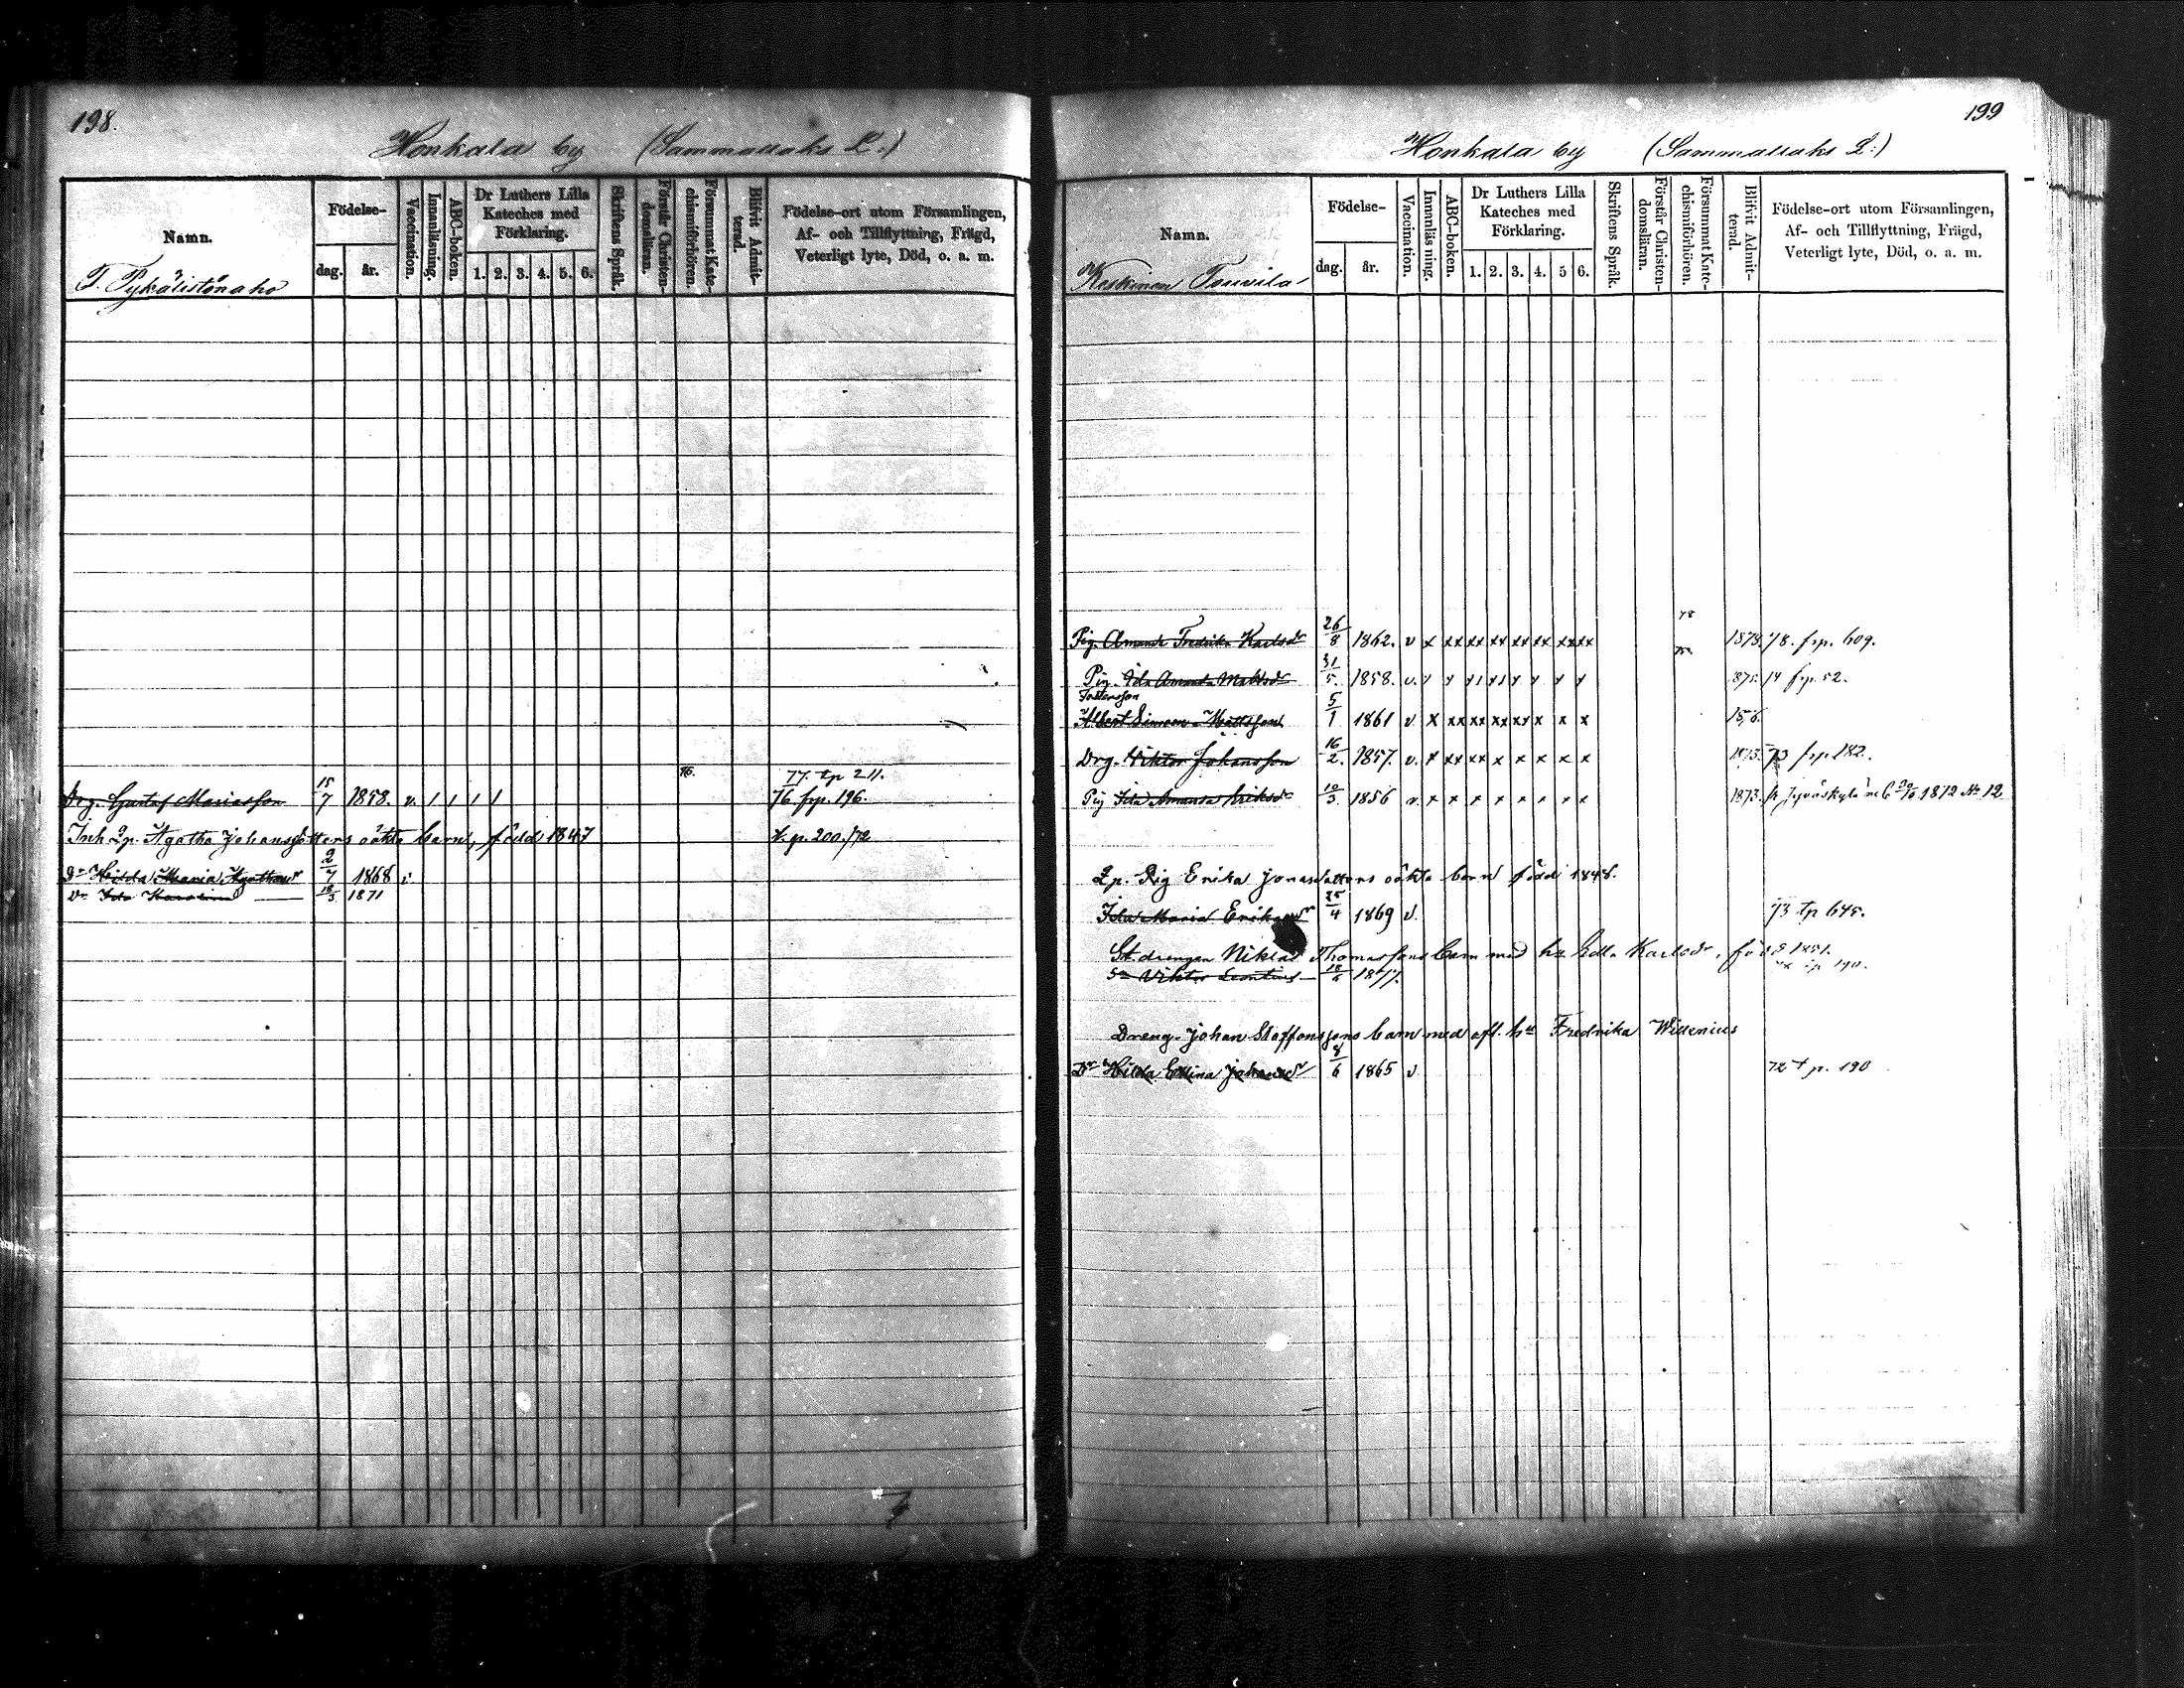 198.
Honkala by (Sammallaks L.)
Namn.
Födelse-
dag.
år.
Vaccination.
Innanläsning.
ABC-boken.
Dr Luthers Lilla
Kateches med
Förklaring.
1. 2. 3. 4. 5. 6.
Skriftens Språk.
Förstår Christen-
domsläran.
Försummat Kate-
chismiförhören.
Blifvit Admit-
terad.
Födelse-ort utom Församlingen,
Af- och Tillflyttning, Frägd,
Veterligt lyte, Död, o. a. m.
T. Pykälistönaho
77. tp 211.
Drg. Gustaf Mariasson 15/7 1858. v. / / / / 76. 76 frp. 196.
Inh Lp. Agatha Johansdotters oäkta barn, född 1847 t. p. 200./72
Dr Hilda Maria Agathasdr 2/7 1868 v
Dr Ida Karolina 18/5 1871
199
Honkala by (Sammallaks L:)
Namn.
Födelse-
dag.
år.
Vaccination.
Innanläsning.
ABC-boken.
Dr Luthers Lilla
Kateches med
Förklaring.
1. 2. 3. 4. 5 6.
Skriftens Språk.
Förstår Christen-
domsläran.
Försummat Kate-
chismiförhören.
Blifvit Admit-
terad.
Födelse-ort utom Församlingen,
Af- och Tillflyttning, Frägd,
Veterligt lyte, Död, o. a. m.
Keskinen Touvila
Pig. Amanda Fredrika Karlsdr 26/8 1862. v x xx xx xx xx xx xx xx 78 1878. 78. frp. 609.
Pig. Ida Amanda Mattsdr 31/5. 1858. v. 1875. 74 frp. 52.
Fosterson
Albert Simeon Mattsson 5/1 1861 v x xx xx xx xx x x x
Drg. Viktor Johansson 16/2. 1857. v. x xx xx x x x x x 1875. 73 frp 182.
Pig Ida Amanda Eriksdr 12/3. 1856 v x x x x x x x x 1873. fr Jyväskylä 1872 No 12
Lp. Pig Erika Jonasdotters oäkta barn född 1848.
Ida Maria Erikasdr 25/4 1869 v. 73 tp 645.
St. drengen Niklas Thomassons barn med hu Edla Karlsdr. född 1851.
Sn Viktor Leontius 18/6 1877. tp 190.
Dreng. Johan Staffanssons barn med afl. hu Fredrika Willenius
Dr Hilda Ellina Johansdr 8/6 1865 v 72 t p. 190